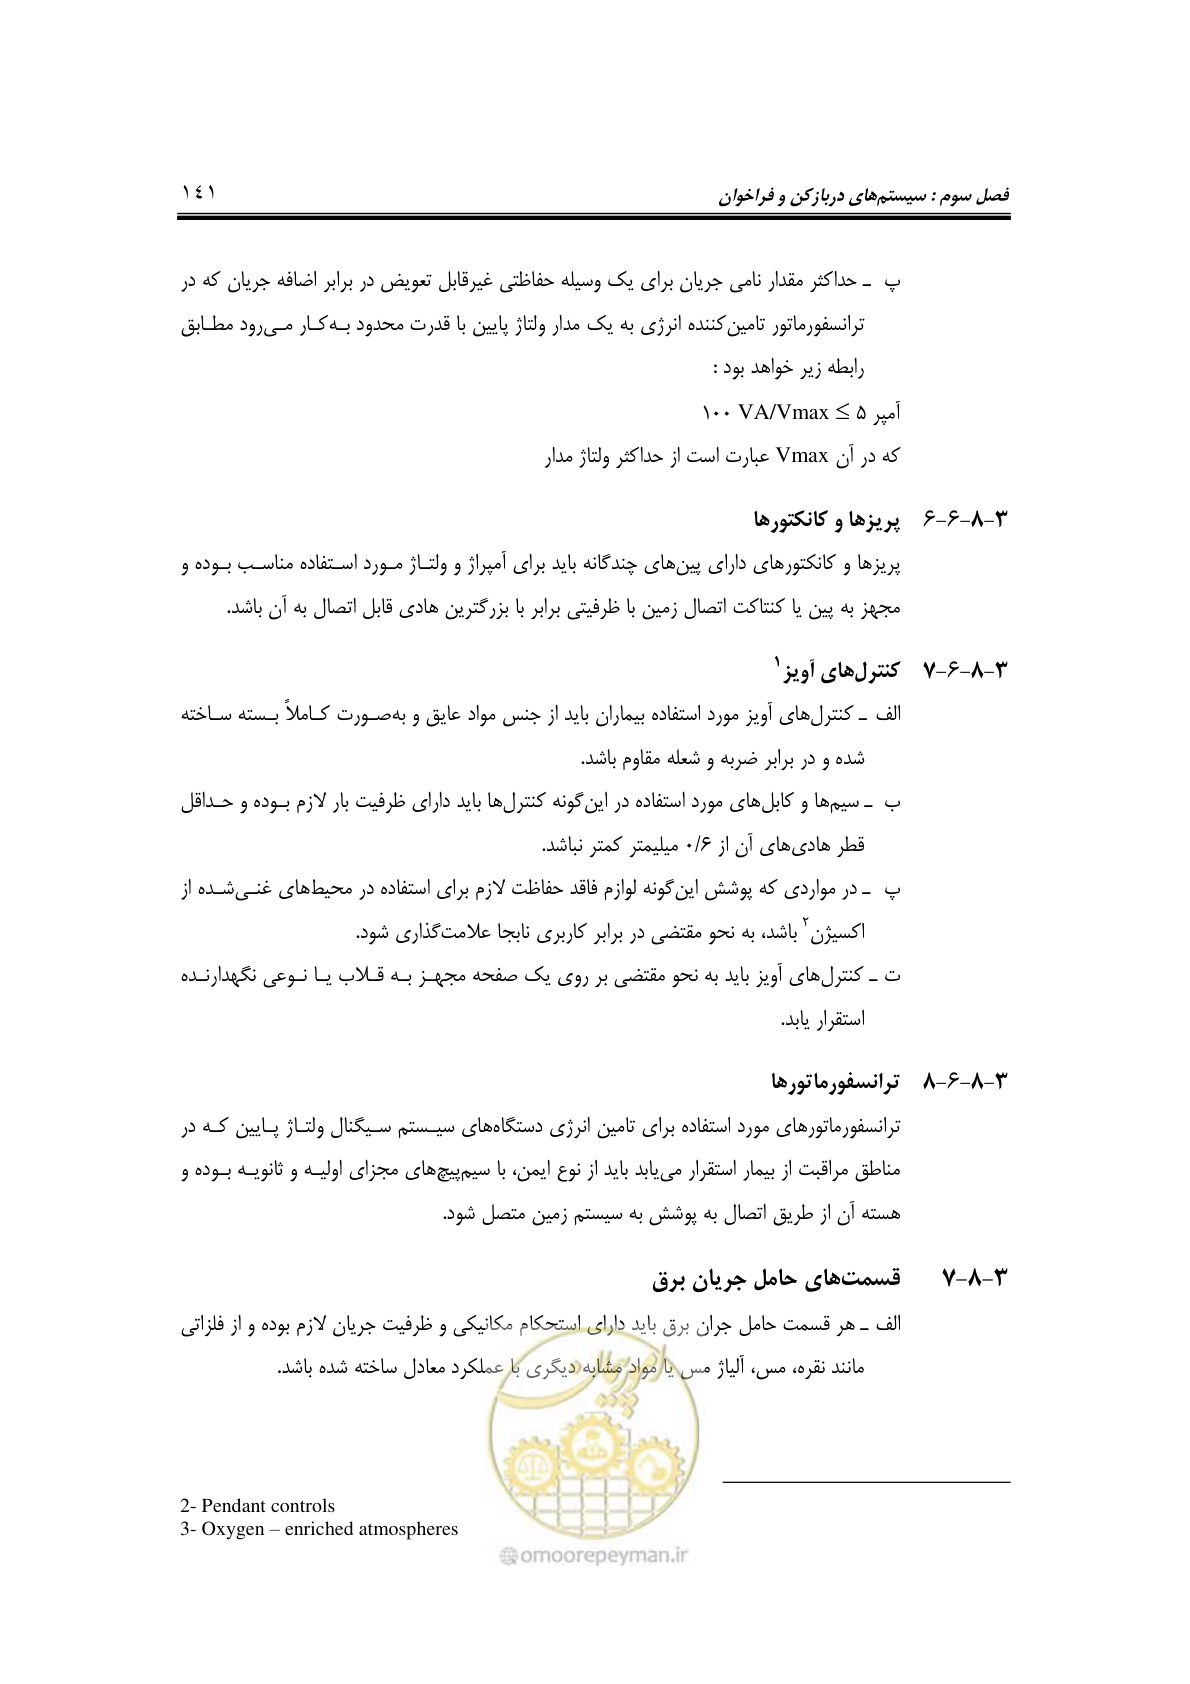 فصل سوم : سیستم‌های دربازکن و فراخوان ۱٤۱
پ ـ حداکثر مقدار نامی جریان برای یک وسیله حفاظتی غیرقابل تعویض در برابر اضافه جریان که در
ترانسفورماتور تامین‌کننده انرژی به یک مدار ولتاژ پایین با قدرت محدود به‌کار می‌رود مطابق
رابطه زیر خواهد بود :
آمپر ۵ ≥ ۱۰۰ VA/Vmax
که در آن Vmax عبارت است از حداکثر ولتاژ مدار
۳-۸-۶-۶ پریزها و کانکتورها
پریزها و کانکتورهای دارای پین‌های چندگانه باید برای آمپراژ و ولتاژ مورد استفاده مناسب بوده و
مجهز به پین یا کنتاکت اتصال زمین با ظرفیتی برابر با بزرگترین هادی قابل اتصال به آن باشد.
۳-۸-۶-۷ کنترل‌های آویز۱
الف ـ کنترل‌های آویز مورد استفاده بیماران باید از جنس مواد عایق و به‌صورت کاملاً بسته ساخته
شده و در برابر ضربه و شعله مقاوم باشد.
ب ـ سیم‌ها و کابل‌های مورد استفاده در این‌گونه کنترل‌ها باید دارای ظرفیت بار لازم بوده و حداقل
قطر هادی‌های آن از ۰/۶ میلیمتر کمتر نباشد.
پ ـ در مواردی که پوشش این‌گونه لوازم فاقد حفاظت لازم برای استفاده در محیط‌های غنی‌شده از
اکسیژن۲ باشد، به نحو مقتضی در برابر کاربری نابجا علامت‌گذاری شود.
ت ـ کنترل‌های آویز باید به نحو مقتضی بر روی یک صفحه مجهز به قلاب یا نوعی نگهدارنده
استقرار یابد.
۳-۸-۶-۸ ترانسفورماتورها
ترانسفورماتورهای مورد استفاده برای تامین انرژی دستگاه‌های سیستم سیگنال ولتاژ پایین که در
مناطق مراقبت از بیمار استقرار می‌یابد باید از نوع ایمن، با سیم‌پیچ‌های مجزای اولیه و ثانویه بوده و
هسته آن از طریق اتصال به پوشش به سیستم زمین متصل شود.
۳-۸-۷ قسمت‌های حامل جریان برق
الف ـ هر قسمت حامل جران برق باید دارای استحکام مکانیکی و ظرفیت جریان لازم بوده و از فلزاتی
مانند نقره، مس، آلیاژ مس یا مواد مشابه دیگری با عملکرد معادل ساخته شده باشد.
امور پیمان
2- Pendant controls
3- Oxygen – enriched atmospheres
omoorepeyman.ir